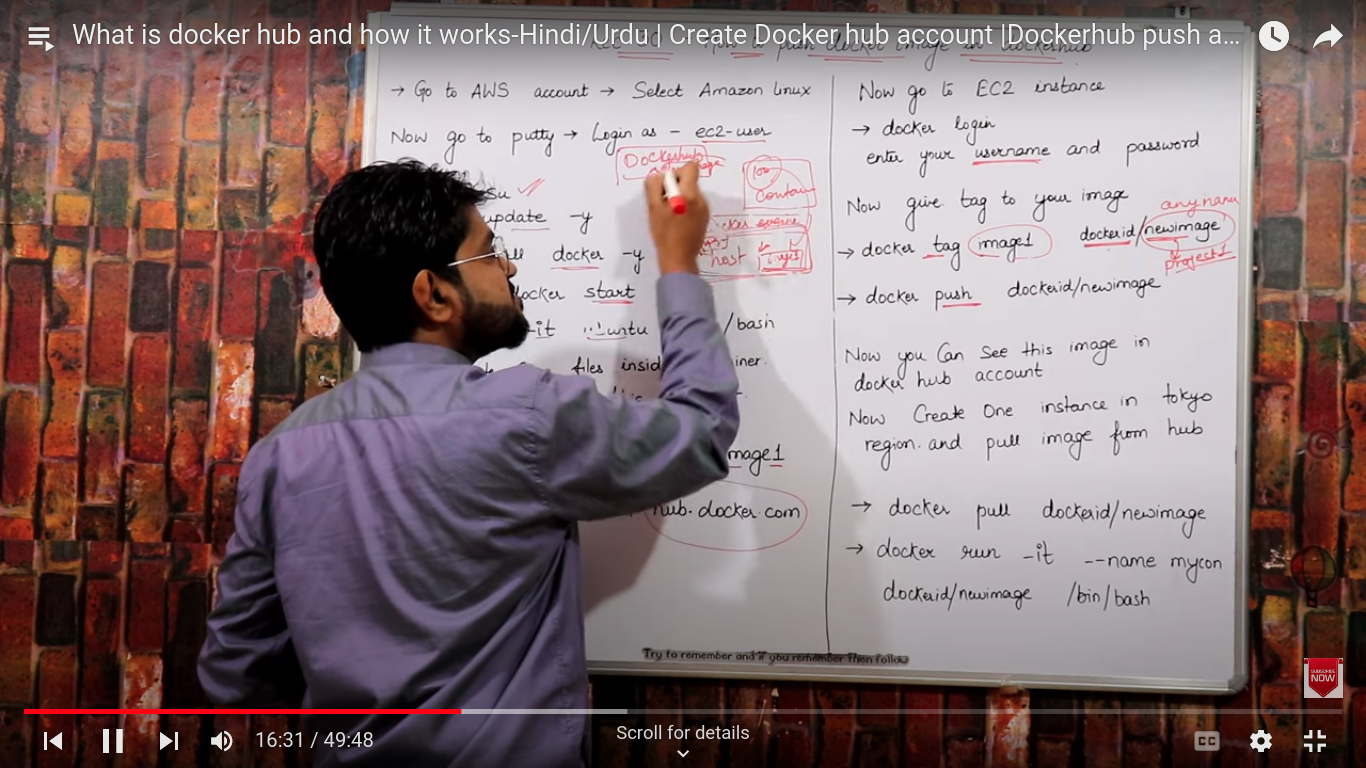 What is docker hub and how it works-Hindi/Urdu | Create Docker hub account |Dockerhub push a...
→ Go to AWS account → Select Amazon linux
Now go to putty → Login as - ec2-user
Dockerhub
su
update -y
docker -y
docker start
-it /bash
files
image1
hub.docker.com
Contain
host
Now go to EC2 instance
→ docker login
enter your username and password
Now give tag to your image
any name
→ docker tag image1 dockerid/newimage
project1
→ docker push dockerid/newimage
Now you Can See this image in
docker hub account
Now Create One instance in tokyo
region. and pull image from hub
→ docker pull dockerid/newimage
→ docker run -it --name mycon
dockerid/newimage /bin/bash
Try to remember and if you remember then follow
SUBSCRIBE
NOW
16:31 / 49:48
Scroll for details
CC